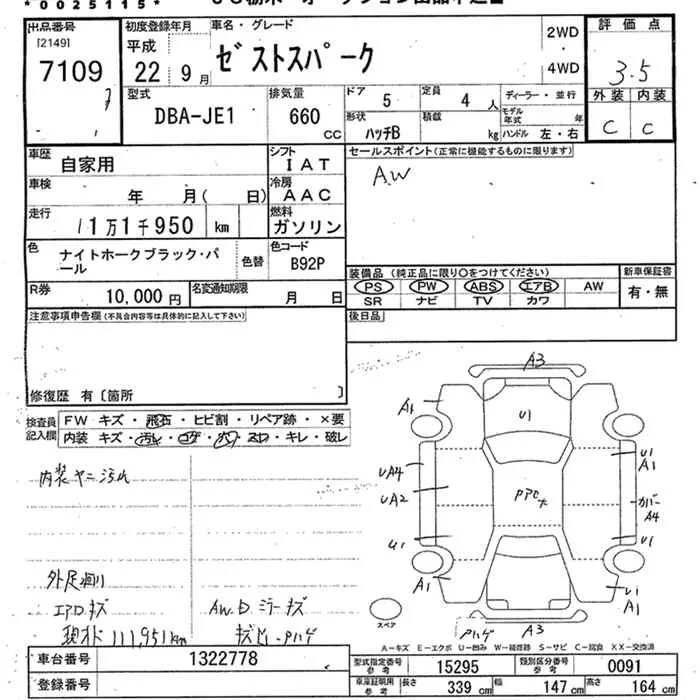 *0025115*
出品番号 [2149]
7109
初度登録年月
平成
22 9月
車名・グレード
ゼストスパーク
2WD
・
4WD
評価点
3.5
型式
DBA-JE1
排気量
660 CC
ドア 5
定員 4 人
ディーラー・並行
モデル年式 年
形状 ハッチB
積載 kg
ハンドル 左・右
外装 内装
C C
車歴 自家用
シフト IAT
セールスポイント(正常に機能するものに限ります)
AW
車検 年 月( 日)
冷房 AAC
走行 11万1千950 km
燃料 ガソリン
色 ナイトホークブラック・パール
色替
色コード B92P
装備品(純正品に限り○をつけてください)
新車保証書
PS PW ABS エアB AW
有・無
SR ナビ TV カワ
R券 10,000円
名変通知期限 月 日
後日品
注意事項申告欄(不具合内容等は具体的に記入して下さい)
修復歴 有〔箇所 〕
検査員記入欄
FW キズ・飛石・ヒビ割・リペア跡・×要
内装 キズ・汚れ・コゲ・穴・スロ・キレ・破レ
内装ヤニ汚れ
外足廻り
エアロキズ
AW.Dミラーキズ
現オド111,951km
A3
A1
U1
U1
A1
UA4
UA2
カバー
A4
U1
U1
A1
U1
A1
A3
スペア
A-キズ E-エクボ U-凹み W-補修跡 S-サビ C-腐食 XX-交換済
車台番号 1322778
登録番号
型式指定番号 参考 15295
類別区分番号 参考 0091
車庫証明用 参考
長さ 339 cm
幅 147 cm
高さ 164 cm